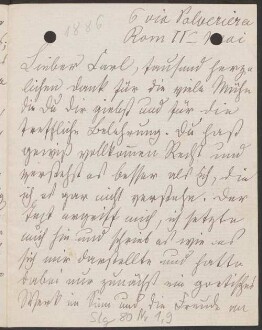 1886
6 via Polveriera
Rom 11 Mai
Lieber Carl, tausend herz-
lichen Dank für die viele Mühe
die Du dir giebst und für die
treffliche Belehrung. Du hast
gewiß vollkommen Recht und
verstehst es besser als ich, die
ich es gar nicht verstehe. Der
Text ergriff mich, ich setzte
mich hin und schrieb es wie es
sich mir darstellte und hatte
dabei nur zunächst ein poetisches
Werk im Sinn und die Freude an
Slg 89 No 1,9